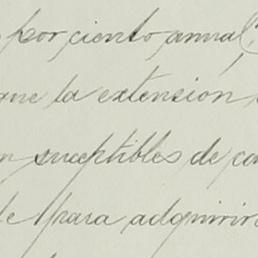 por ciento annal
que la extensión
n suceptibles de ca
le para adquirir